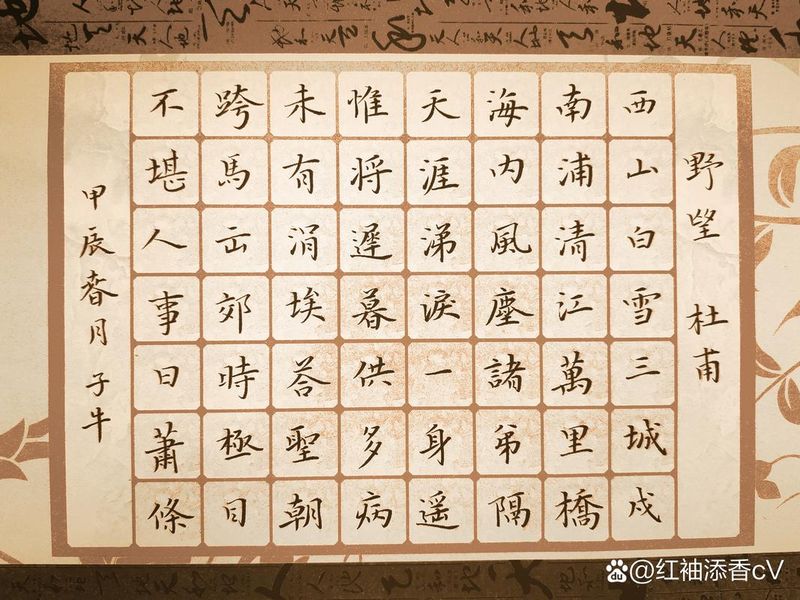 野望 杜甫
西山白雪三城戍
南浦清江萬里橋
海内風塵諸弟隔
天涯涕淚一身遥
惟将遲暮供多病
未有涓埃答聖朝
跨馬出郊時極目
不堪人事日蕭條
甲辰春月子牛
@红袖添香cV